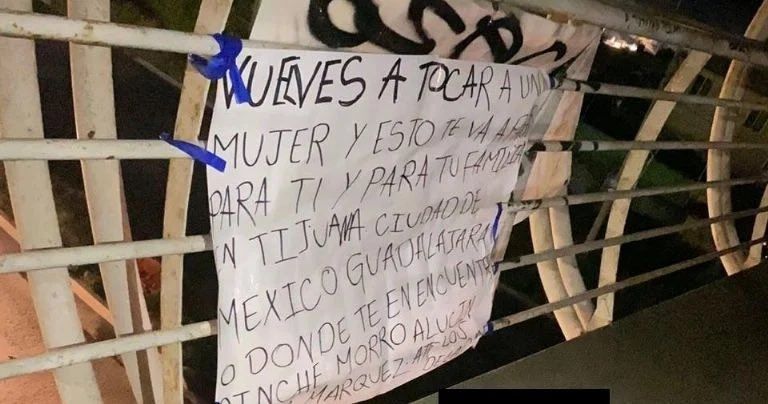 VUELVES A TOCAR A UNA
MUJER Y ESTO TE VA A
PARA TI Y PARA TU FAMILIA
EN TIJUANA CIUDAD DE
MEXICO GUADALAJARA
O DONDE TE EN ENCUENTRE
PINCHE MORRO ALUCIN
MARQUEZ. ATT LOS